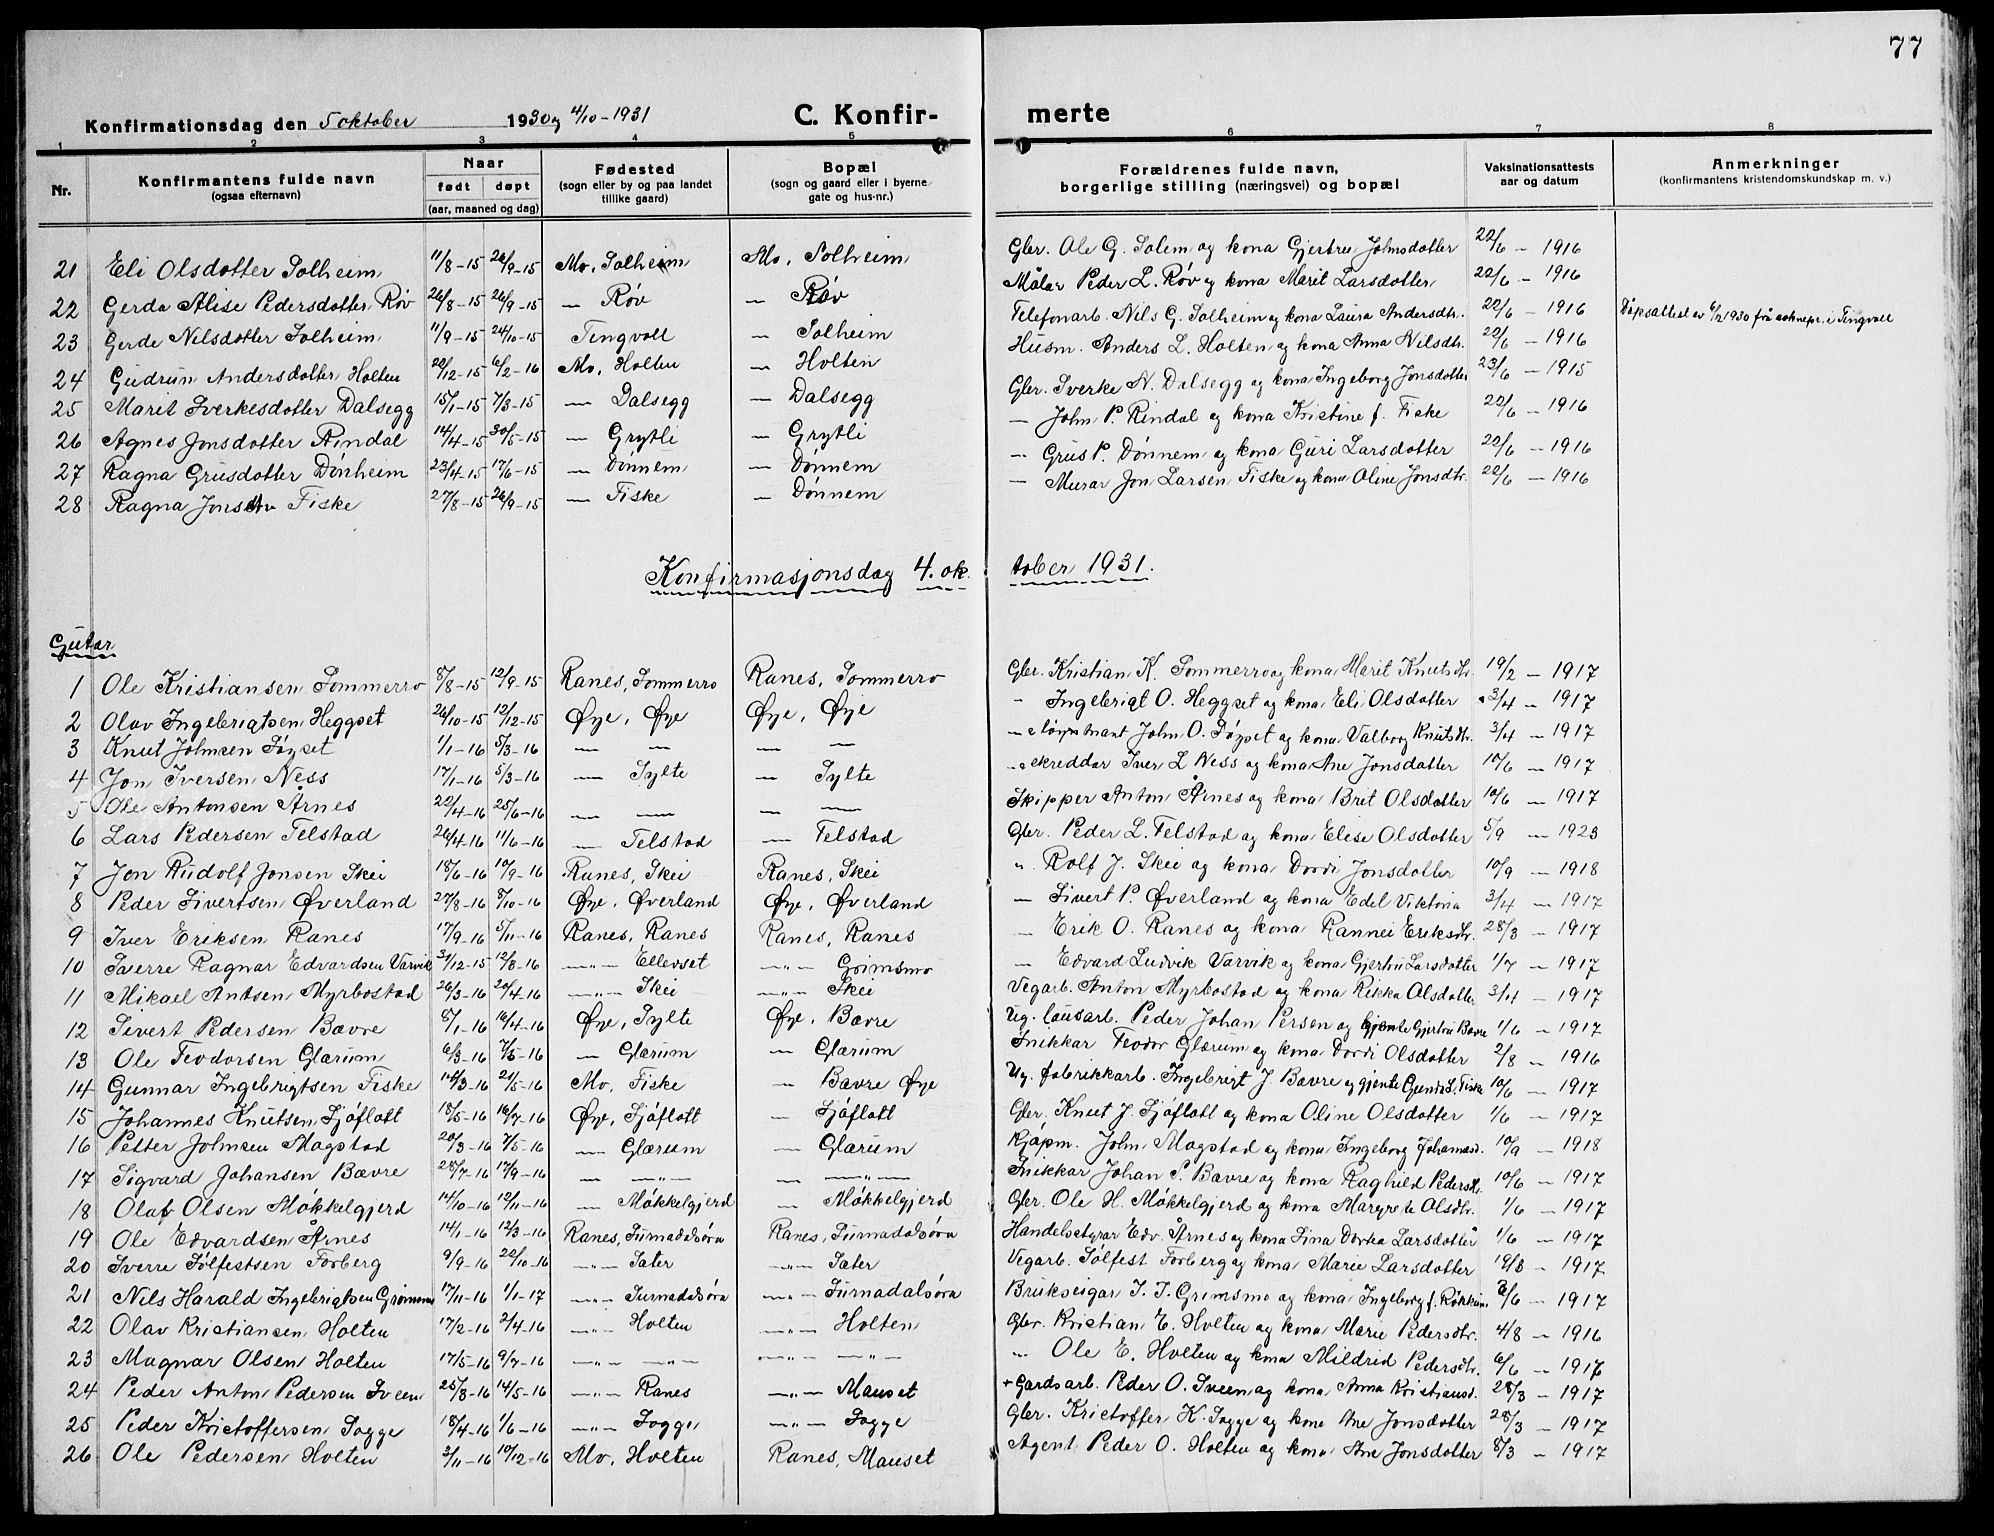 77
Konfirmationsdag den 5 oktober 1930 og 4/10 - 1931 C. Konfir- merte
1 2 3 4 5 6 7 8
Nr. Konfirmantens fulde navn (ogsaa efternavn) Naar født døpt (aar, maaned og dag) Fødested (sogn eller by og paa landet tillike gaard) Bopæl (sogn og gaard eller i byerne gate og hus-nr.) Forældrenes fulde navn, borgerlige stilling (næringsvei) og bopæl Vaksinationsattests aar og datum Anmerkninger (konfirmantens kristendomskundskap m. v.)
21 Eli Olsdotter Solheim 11/8-15 26/9-15 Mo, Solheim Mo, Solheim Gbr. Ole G. Solem og kona Gjertru Johnsdotter 22/6 - 1916
22 Gerda Alise Pedersdotter Røv 26/8-15 26/9-15 — Røv — Røv Målar Peder L. Røv og kona Marit Larsdotter 22/6 - 1916
23 Gerde Nilsdotter Solheim 11/9-15 24/10-15 Tengvoll — Solheim Telefonarb. Nils G. Solheim og kona Laura Andersdtr. 22/6 - 1916 Dåpsattest av 6/2 1930 frå soknepr. i Tingvoll
24 Gudrun Andersdotter Holten 20/12-15 6/2-16 Mo, Holten — Holten Husm. Anders L. Holten og kona Anna Nilsdtr. 22/6 - 1916
25 Marit Sverkesdotter Dalsegg 15/1-15 7/3-15 — Dalsegg — Dalsegg Gbr. Sverke N. Dalsegg og kona Ingeborg Jonsdotter 23/6 - 1915
26 Agnes Jonsdotter Rindal 14/4-15 30/5-15 — Grytli — Grytli — John P. Rindal og kona Kristine f. Fiske 22/6 - 1916
27 Ragna Grusdotter Dønheim 23/4-15 17/6-15 — Dønnem — Dønnem — Grus P. Dønnem og kona Guri Larsdotter 22/6 - 1916
28 Ragna Jonsdtr Fiske 27/8-15 26/9-15 — Fiske — Dønnem — Murar Jon Larsen Fiske og kona Oline Jonsdtr. 22/6 - 1916
Konfirmasjonsdag 4. ok tober 1931.
Gutar
1 Ole Kristiansen Sommerro 8/8-15 12/9-15 Ranes, Sommerro Ranes, Sommerro Gbr. Kristian K. Sommerro og kona Marit Knutsdtr. 19/2 - 1917
2 Olav Ingebrigtsen Heggset 26/10-15 12/12-15 Øye, Øye Øye, Øye " Ingebrigt O. Heggset og kona Eli Olsdotter 3/4 - 1917
3 Knut Johnsen Søyset 1/1-16 5/3-16 — — — — John O. Søyset og kona Valborg Knutsdtr. 3/4 - 1917
4 Jon Iversen Ness 17/1-16 5/3-16 — Sylte — Sylte skreddar Iver L Ness og kona Ane Jonsdotter 10/6 - 1917
5 Ole Antonsen Årnes 22/4-16 25/6-16 — — — — Skipper Anton Årnes og kona Brit Olsdotter 10/6 - 1917
6 Lars Pedersen Telstad 26/4-16 11/6-16 — Telstad — Telstad Gbr. Peder L. Telstad og kona Elise Olsdotter 5/9 - 1923
7 Jon Rudolf Jonsen Skei 18/6-16 10/9-16 Ranes, Skei Ranes, Skei " Rolf J. Skei og kona Dordi Jonsdotter 10/9 - 1918
8 Peder Sivertsen Øverland 27/8-16 8/10-16 Øye, Øverland Øye, Øverland — Sivert P. Øverland og kona Edel Viktoria 3/4 - 1917
9 Iver Eriksen Ranes 17/9-16 5/11-16 Ranes, Ranes Ranes, Ranes — Erik O. Ranes og kona Rannei Eriksdtr. 28/3 - 1917
10 Sverre Ragnar Edvardsen Varvik 31/12-15 12/3-16 —"— Ellevset —"— Grimsmo — Edvard Ludvik Varvik og kona Gjertru Larsdotter 1/7 - 1917
11 Mikael Antsen Myrbostad 26/3-16 20/4-16 —"— Skei —"— Skei Vegarb. Anton Myrbostad og kona Rikka Olsdotter 3/4 - 1917
12 Sivert Pedersen Bævre 8/1-16 16/4-16 Øye, Sylte Øye, Bævre Ug. lausarb. Peder Johan Persen og gjente Gjertru Bævre 1/6 - 1917
13 Ole Teodorsen Glærum 6/3-16 7/5-16 — Glærum — Glærum Snikkar Teodor Glærum og kona Dordi Olsdotter 2/8 - 1916
14 Gunnar Ingebrigtsen Fiske 14/3-16 21/5-16 Mo, Fiske — Bævre Øye Ug. fabrikkarb. Ingebrigt J. Bævre og gjente Gunda L. Fiske 10/6 - 1917
15 Johannes Knutsen Sjøflott 18/5-16 16/7-16 Øye, Sjøflott — Sjøflott Gbr. Knut J. Sjøflott og kona Oline Olsdotter 1/6 - 1917
16 Petter Johnsen Magstad 20/3-16 7/5-16 — Glærum — Glærum Kjøpm. John Magstad og kona Ingeborg Johannesd. 10/9 - 1918
17 Sigvard Johansen Bævre 28/7-16 17/9-16 — —"— — —"— Snikkar Johan S. Bævre og kona Raghild Pedersdtr. 10/6 - 1917
18 Olaf Olsen Møkkelgjerd 14/10-16 12/11-16 — Møkkelgjerd — Møkkelgjerd Gbr. Ole H. Møkkelgjerd og kona Margrete Olsdtr. 1/6 - 1917
19 Ole Edvardsen Årnes 14/1-16 12/3-16 Ranes, Surnadalsøra Ranes, Surnadalsøra Handelsstyrar Edv. Årnes og kona Lina Dortea Larsdotter 1/6 - 1917
20 Sverre Sølfestsen Forberg 9/9-16 22/10-16 —"— Sæter —"— Sæter Vegarb. Sølfest Forberg og kona Marie Larsdotter 19/8 - 1917
21 Nils Harald Ingebrigtsen Grimsmo 17/11-16 1/1-17 —"— Surnadalsøra —"— Surnadalsøra Brukseigar I. I. Grimsmo og kona Ingeborg f. Røkkum 3/6 - 1917
22 Olav Kristiansen Holten 17/2-16 2/4-16 —"— Holten —"— Holten Gbr. Kristian E. Holten og kona Marie Pedersdtr. 4/8 - 1916
23 Magnar Olsen Holten 17/5-16 9/7-16 —"— —"— —"— —"— " Ole E. Holten og kona Mildrid Pedersdtr. 6/6 - 1917
24 Peder Anton Pedersen Sveen 25/3-16 14/5-16 —"— Ranes —"— Mauset + Gardsarb. Peder O. Sveen og kona Anna Kristiansd. 28/3 - 1917
25 Peder Kristoffersen Sogge 18/4-16 1/6-16 —"— Sogge —"— Sogge Gbr. Kristoffer K. Sogge og kona Ane Jonsdotter 28/3 - 1917
26 Ole Pedersen Holten 3/11-16 10/12-16 Mo, Holten Ranes, Mauset Agent Peder O. Holten og kona Ane Jonsdotter 8/3 - 1917